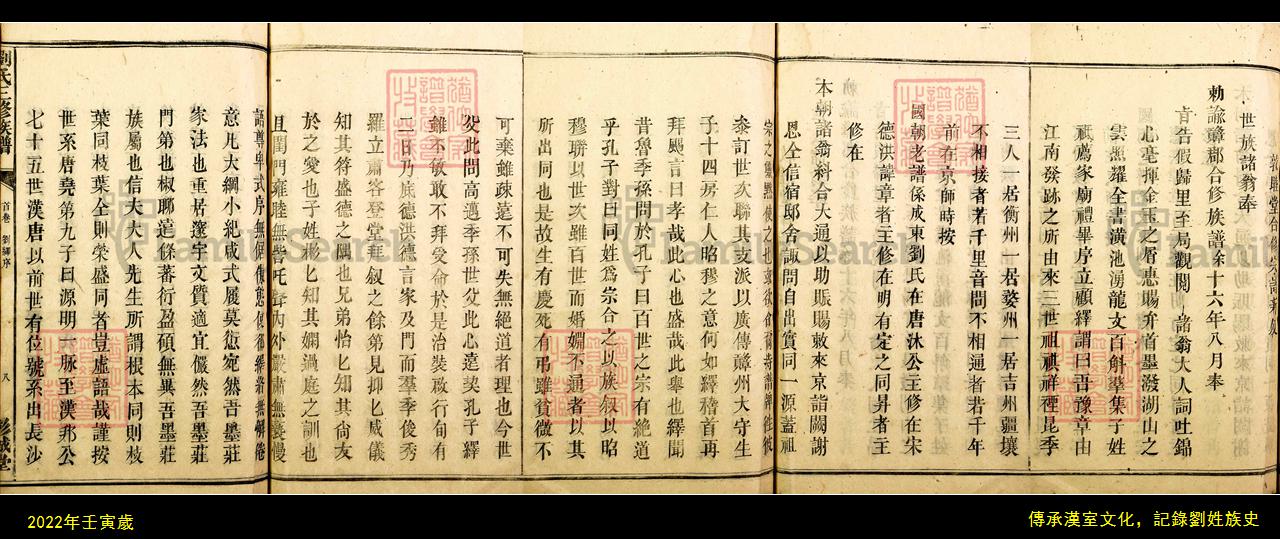 世族諸翁奉
勅諭贛郡合修族譜餘十六年八月奉
旨告假歸里至局觀閱諸翁大人詞吐錦
心毫揮金玉之眉惠賜弁首墨潑湖山之
雲照耀全書潢池湧龍文百斛羣集子姓
祇薦家廟禮畢序立顧繹謂曰吉豫章由
江南發跡之所由來三世祖祺祥禋昆季
三人一居衡州一居婺州一居吉州疆壤
不相接者若千里音問不相通者若千年
前在京師時按
國朝老譜係成東劉氏在唐沐公主修在宋
德洪諱章者主修在明有定之同昇者主
修在
本朝諸翁糾合大通以助賑賜敕來京詣闕謝
恩仝信宿邸舍諏問自出實同一源蓋祖
宗之靈
泰訂世次聯其支派以廣傳贛州大守生
子十四房仁人昭穆之意何如繹稽首再
拜颺言曰孝哉此心也盛哉此舉也繹聞
昔魯季孫問於孔子曰百世之宗有絕道
乎孔子對曰同姓爲宗合之以族叙以昭
穆聯以世次雖百世而婚媾不通者以其
所出同也是故生有慶死有弔雖貧微不
可棄雖疎遠不可失無絕道者理也今世
父此問高邁季孫世父此心遠契孔子繹
雖不敏敢不拜受命於是治裝啟行旬有
二日乃底德洪德言家及門而羣季俊秀
羅立肅容登堂拜叙之餘弟見抑匕威儀
知其符盛德之隅也兄弟怡匕知其尙友
於之愛也子姓彬匕知其嫻過庭之訓也
且閨門雍睦無詈吒聲內外嚴肅無褻慢
語尊卑式序無
意凡大綱小紀咸式履莫愆宛然吾墨莊
家法也重居邃宇文質適宜儼然吾墨莊
門第也椒聊遠條蕃衍盈碩無異吾墨莊
族屬也信夫大人先生所謂根本同則枝
葉同枝葉全則榮盛同者豈虛語哉謹按
世系唐堯第九子曰源明六脉至漢邦公
七十五世漢唐以前世有位號系出長沙
劉氏三修族譜
首卷
劉繹序
八
彭城堂
2022年壬寅歲
傳承漢室文化，記錄劉姓族史
FamilySearch